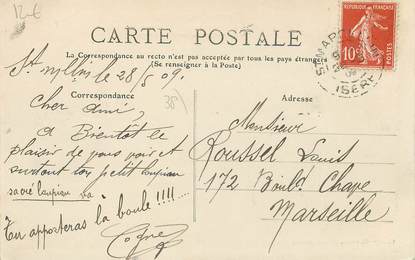 12€
CARTE POSTALE
La Correspondance au recto n'est pas acceptée par tous les pays étrangers
(Se renseigner à la Poste)
RÉPUBLIQUE FRANÇAISE
10
POSTES
ST MARC
ISÈRE
28/5 09
Correspondance
38
Adresse
Cher ami,
A Bientôt le
plaisir de vous voir et
surtout ton petit
sacré va
Tu apporteras la boule !!!!....
Monsieur
Roussel Louis
172 Bould Chave
Marseille